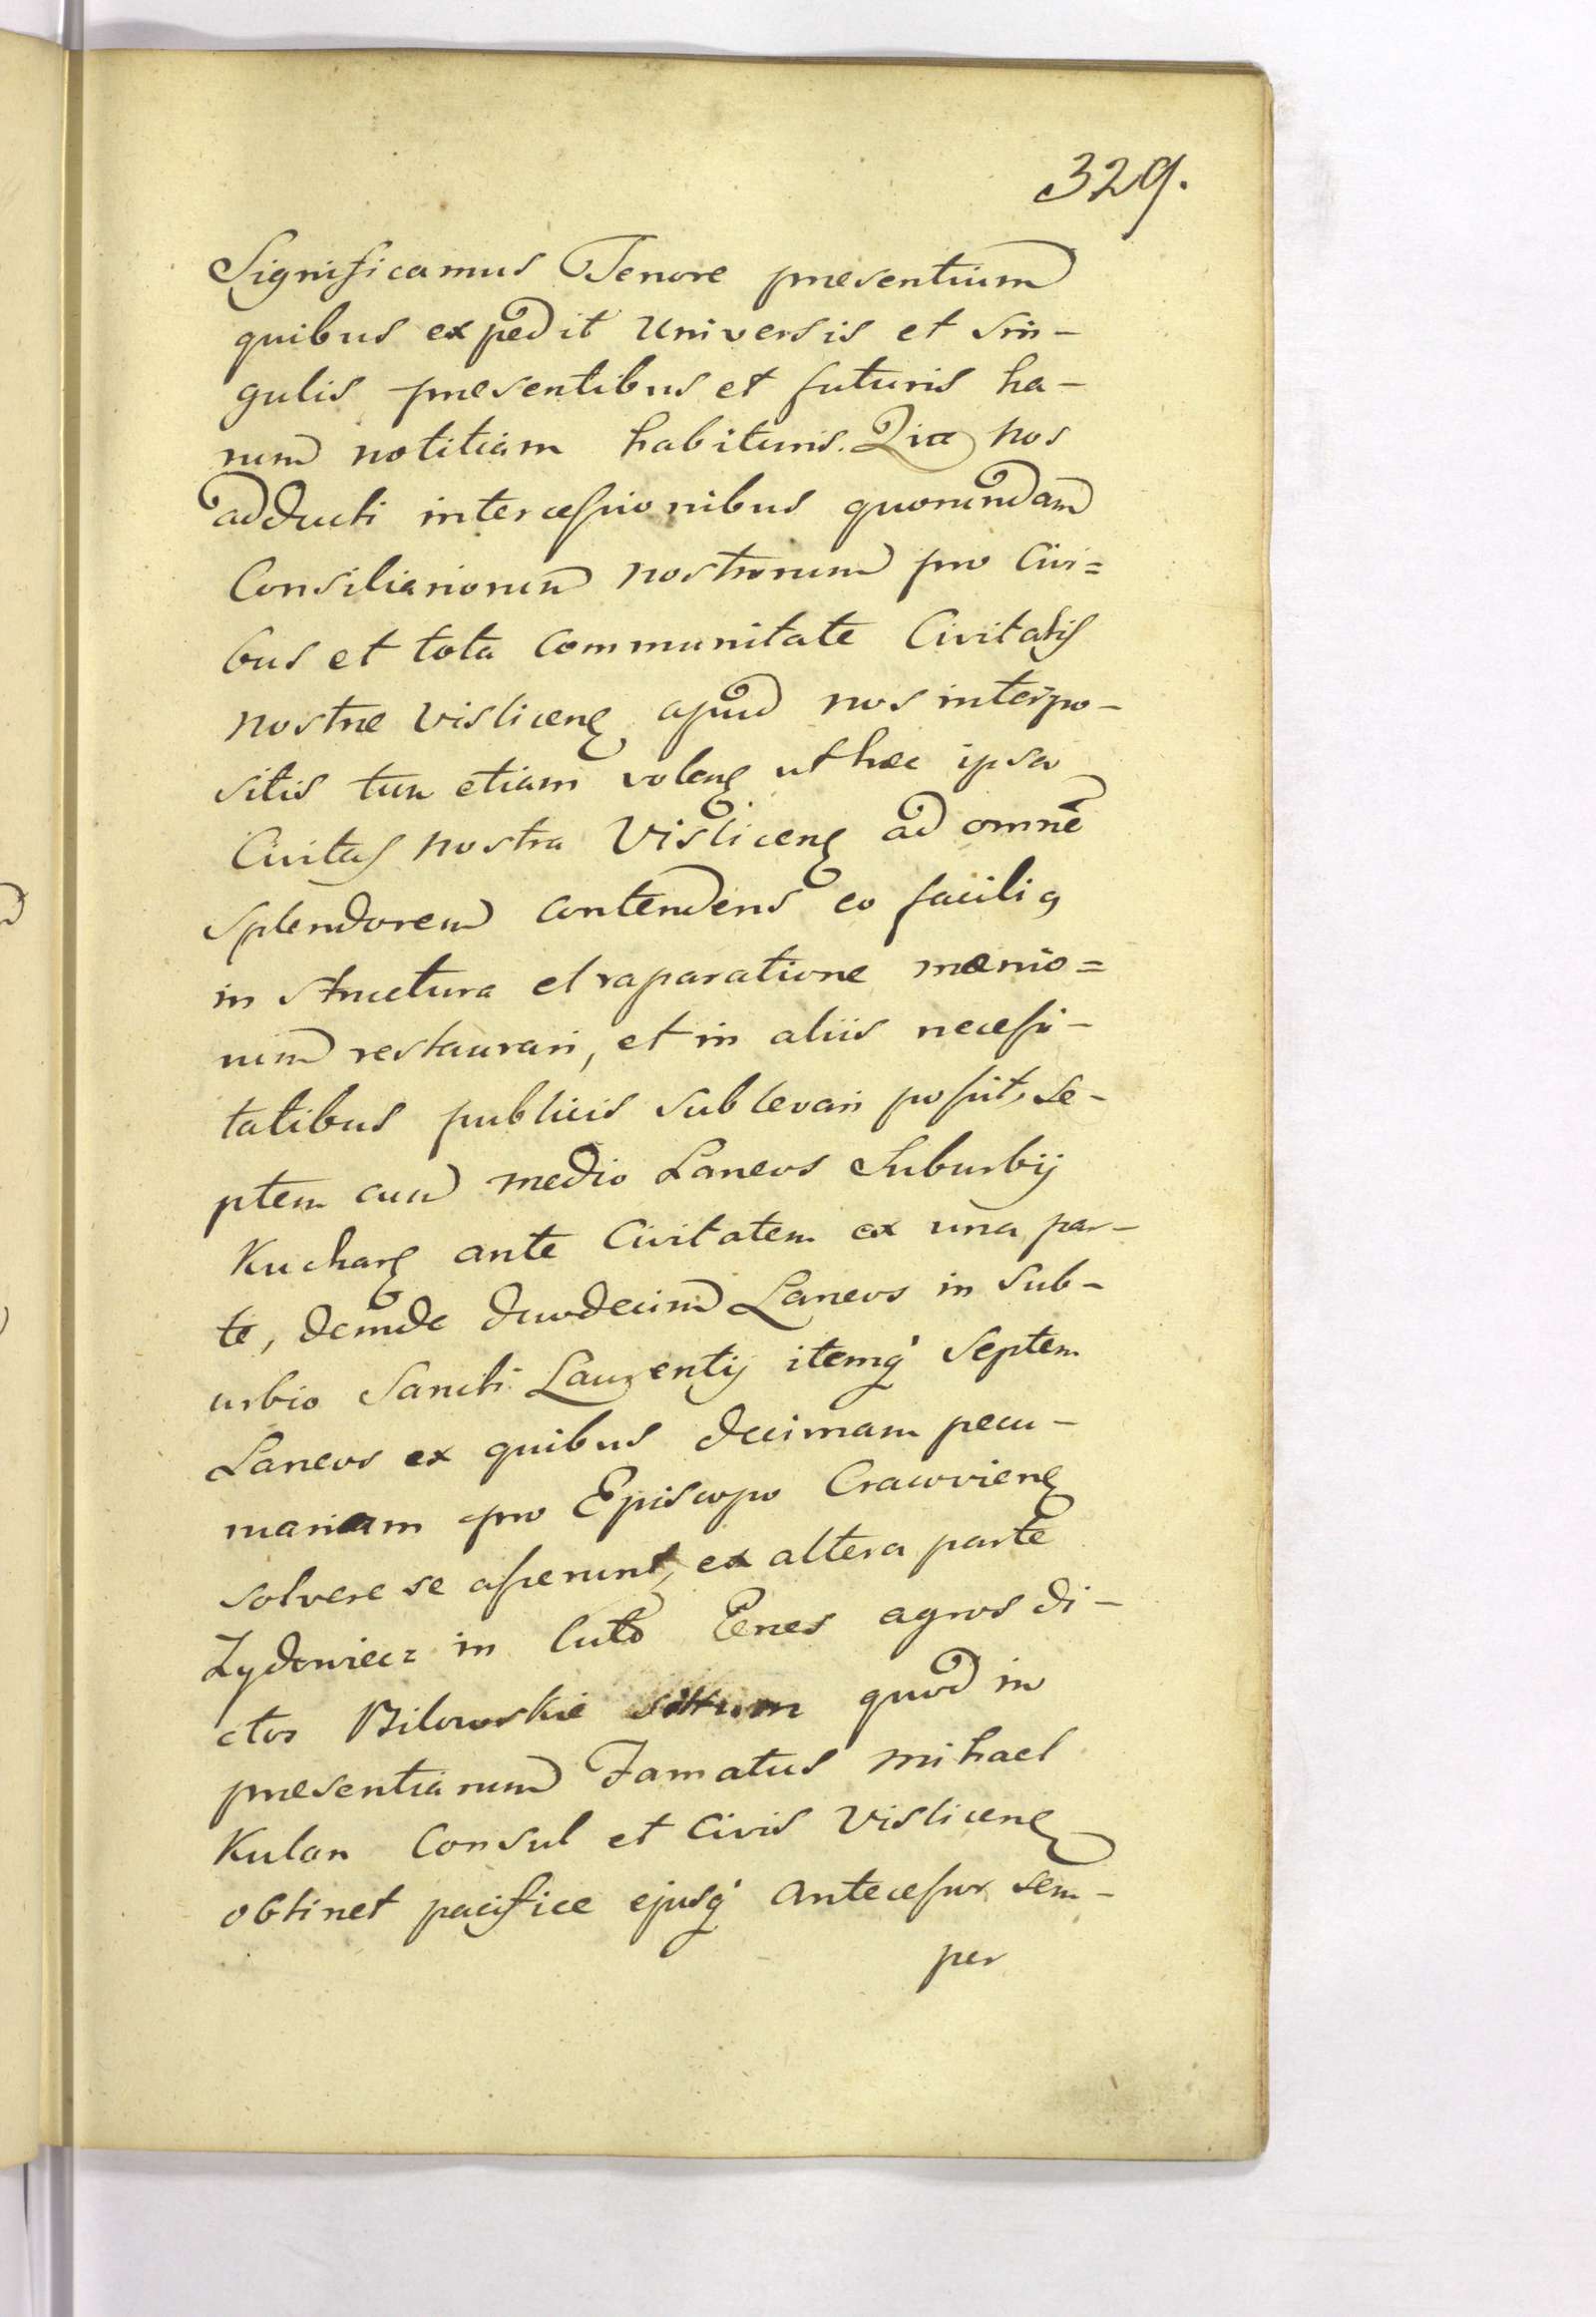 329.
Significamus Tenore presentium
quibus expedit Universis et sin-
gulis presentibus et futuris ha-
rum notitiam habituris. Qia nos
adducti intercessionibus quorundam
Consiliariorum nostrorum pro Civi=
bus et tota communitate Civitatis
nostræ Vislicenę apud nos interpo-
sitis tum etiam volenę ut hæc ipsa
Civitas nostra Vislicenę ad omnē
splendorem contendens eo facili9
in structura et raparatione mœnio=
rum restaurari, et in aliis necessi-
tatibus publicis sublevari possit, se-
ptem cum medio Laneos Suburbij
Kucharę ante Civitatem ex una par-
te, deinde duodecim Laneos in Sub-
urbio Sancti Laurentij itemq' Septem
Laneos ex quibus decimam pecu-
niariam pro Episcopo Cracovienę
solvere se asserunt, ex altera parte
Zydowiecz in luto Penes agros di-
ctos Bilowskie situm quod in
presentiarum Famatus Mihael
Kulan Consul et Civis Vislicenę
obtinet pacifice ejusq' antecessor sem-
per